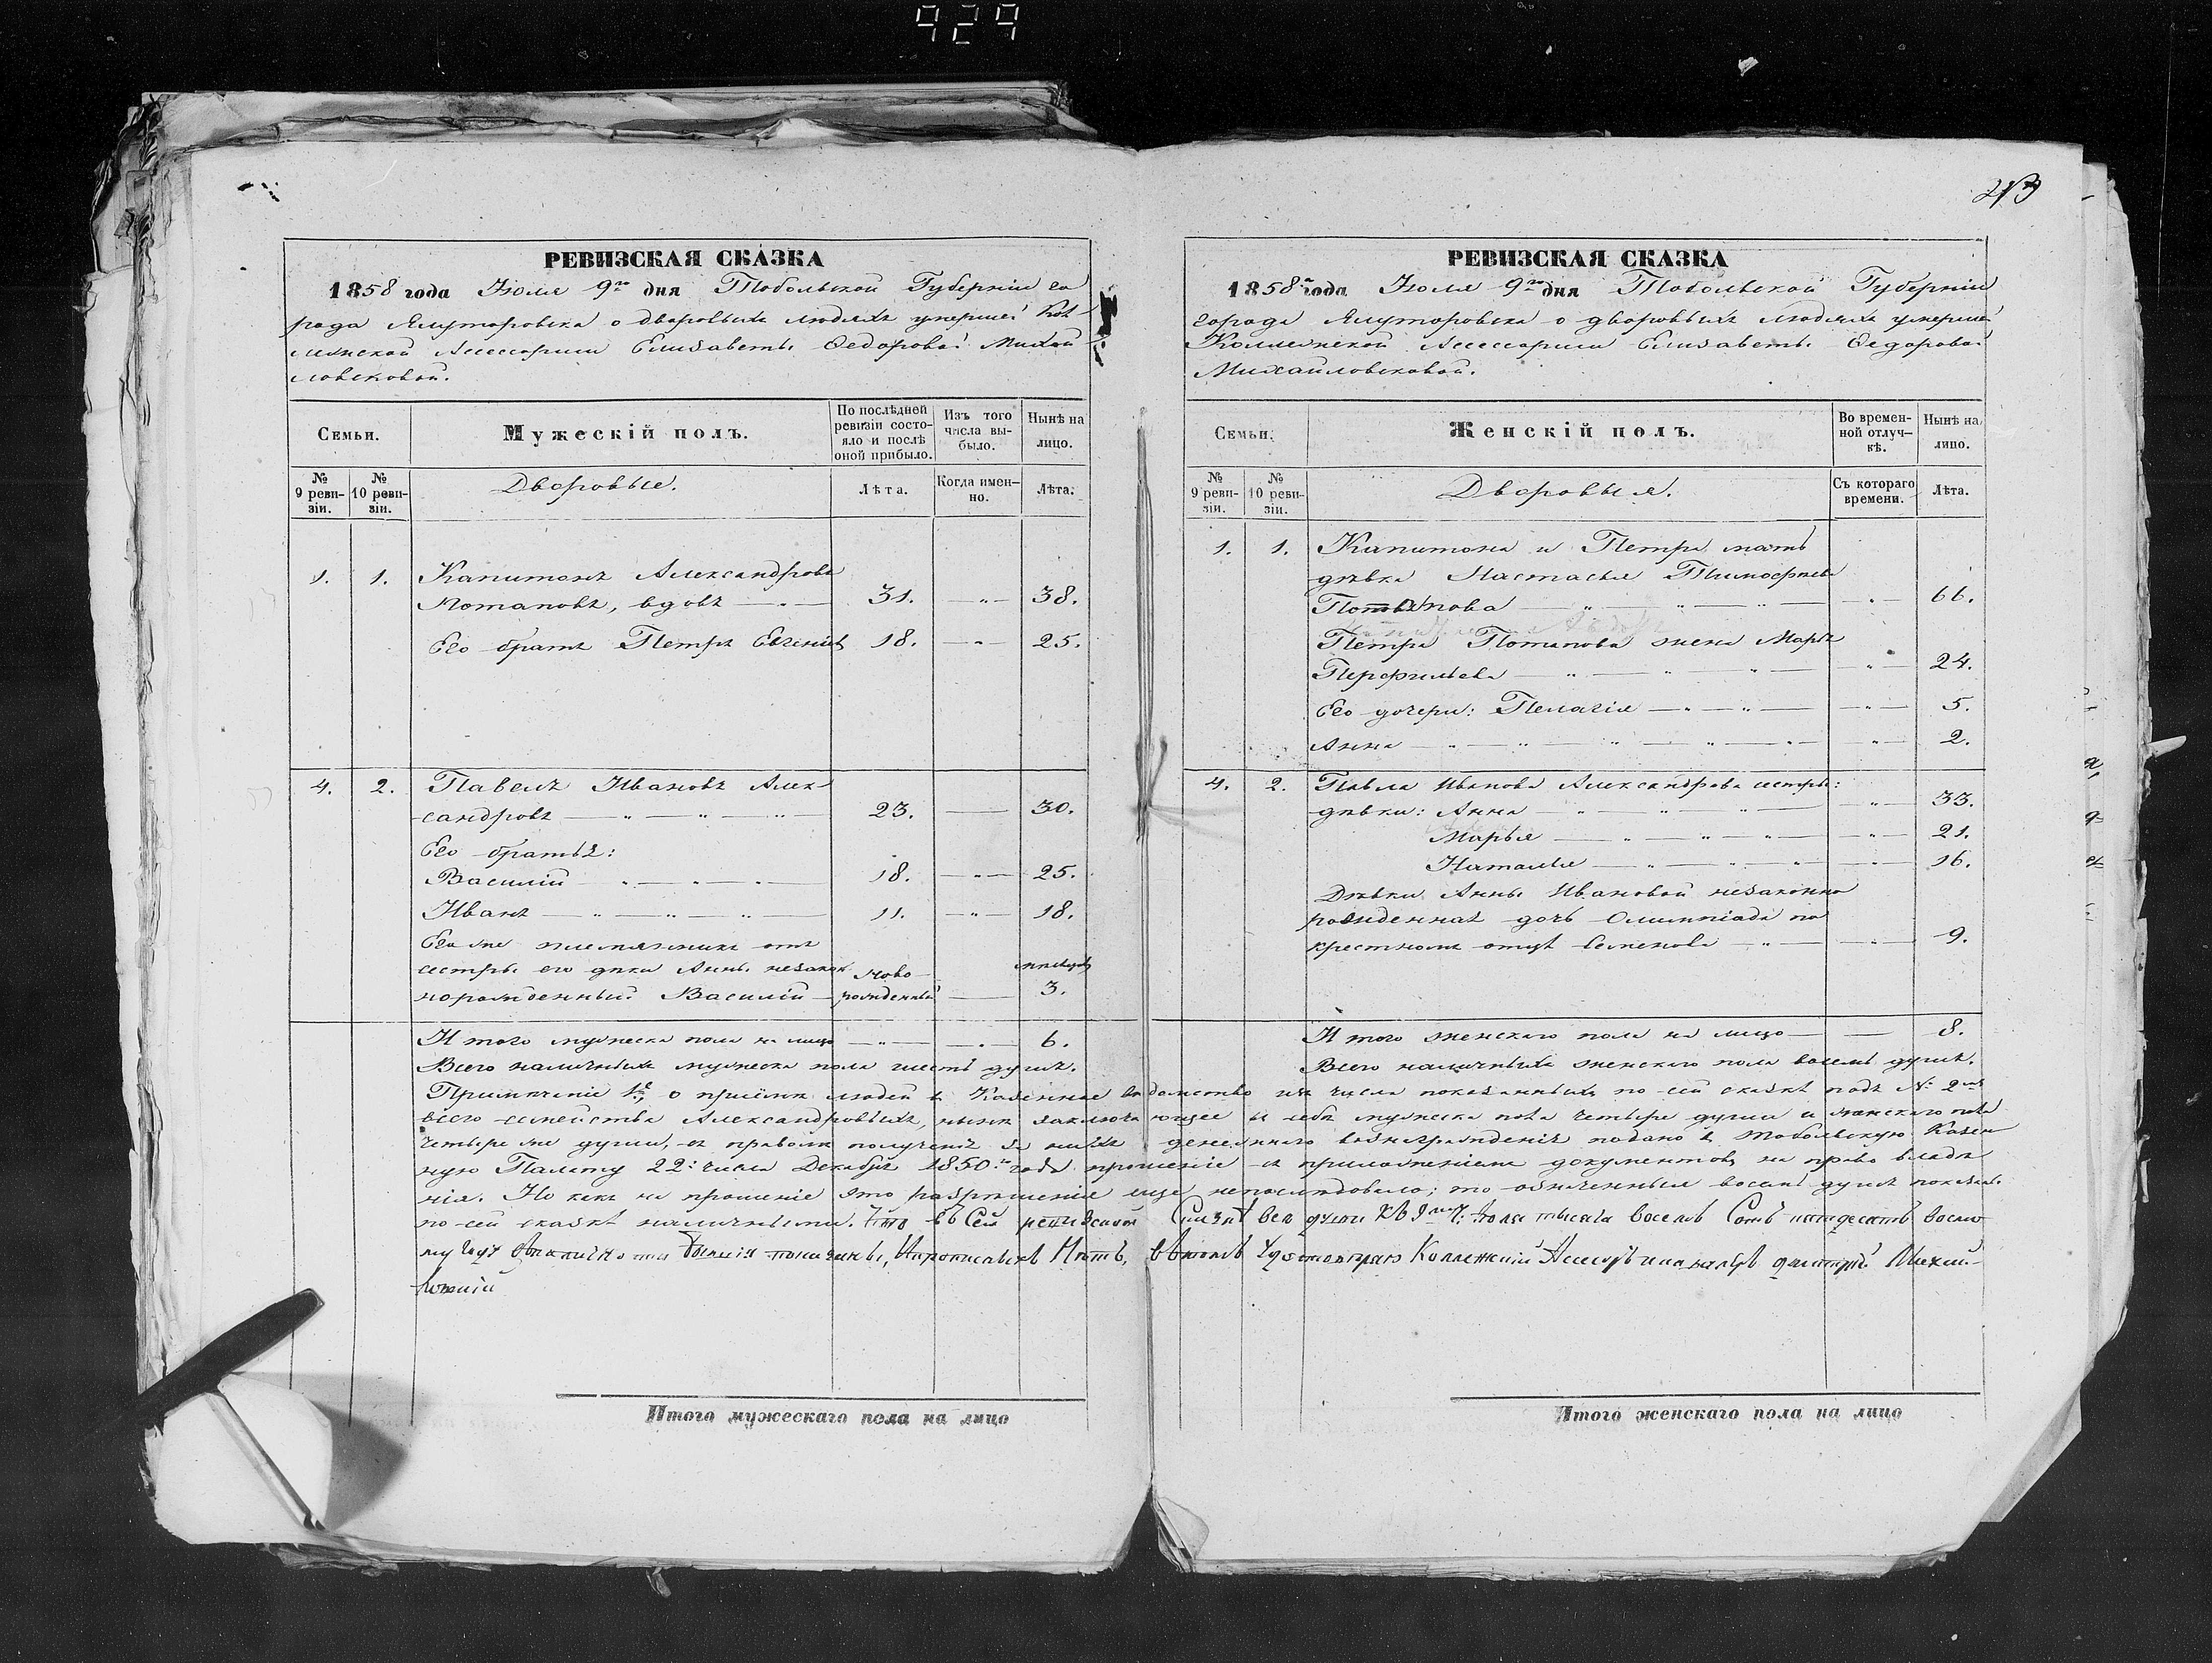 929
РЕВИЗСКАЯ СКАЗКА
1858 года Іюля 9го дня Тобольской Губерніи го
рода Ялуторовска о дворовыхъ людяхъ умершей Кол
лежской Ассесорши Елизаветы Ѳедоровой Михай
ловсковой.
Семьи.
Мужескій полъ.
По послѣдней
ревизіи состо-
яло и послѣ
оной прибыло.
Изъ того
числа вы-
было.
Нынѣ на
лицо.
№
9 реви-
зіи.
№
10 реви-
зіи.
Дворовые.
Лѣта.
Когда имен-
но.
Лѣта.
1. 1. Капитонъ Александровъ
Потаповъ, вдовъ — 31. — 38.
Его братъ Петръ Евгеніевъ 18. — 25.
4. 2. Павелъ Ивановъ Алек
сандровъ — 23. — 30.
Его братья:
Василій — 18. — 25.
Иванъ — 11. — 18.
Его же племянникъ отъ
сестры его дѣвки Анны незакон ново
норожденный Василій — рожденный — 3.
И того мужеска пола на лицо — 6.
Всего наличныхъ мужеска пола шесть душъ.
Итого мужескаго пола на лицо
РЕВИЗСКАЯ СКАЗКА
1858 года Іюля 9го дня Тобольской Губерніи
города Ялуторовска о дворовыхъ людяхъ умершей
Коллежской Ассесорши Елизаветы Ѳедоровой
Михайловсковой.
Семьи.
Женскій полъ.
Во времен-
ной отлуч-
кѣ.
Нынѣ на
лицо.
№
9 реви-
зіи.
№
10 реви-
зіи.
Дворовыя.
Съ котораго
времени.
Лѣта.
1. 1. Капитона и Петра мать
дѣвка Настасья Тимофѣева
Потапова — 66.
Петра Потапова жена Марья
Перфильева — 24.
Его дочери: Пелагія — 5.
Анна — 2.
4. 2. Павла Иванова Александрова сестры:
дѣвки: Анна — 33.
Марья — 21.
Наталья — 16.
Дѣвки Анны Ивановой незаконно
рожденная дочь Олимпіада по
крестному отцѣ Семенова — 9.
И того женскаго пола на лицо — 8.
Всего наличныхъ женскаго пола восемь душъ.
Примѣчаніе 1е, о пріёмѣ людей въ Казенное вѣдомство изъ числа показанныхъ по сей сказкѣ подъ № 2мъ
всего семейства Александровыхъ, нынѣ заключающее въ себѣ мужеска пола четыре души и женскаго пола
четыре же души, съ правомъ полученія за нихъ денежнаго вознагражденія подано въ Тобольскую Казен
ную Палату 22 числа Декабря 1850 года прошеніе съ приложеніемъ документовъ на право владѣ
нія. Но какъ на прошеніе это разрѣшенія еще непослѣдовало; то означенныя восемь душъ показаны
по сей сказкѣ наличными. Что въ Сей ревизской Сказкѣ все души къ 9му Ч: Іюля тысяча Восемь Сотъ пятдесятъ восмо
му году показаны, и прописныхъ Нѣтъ, въ томъ удостоверяю Коллежскій Ассесоръ Михай-
ловскій
Итого женскаго пола на лицо